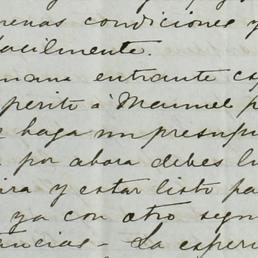 renas condiciones y
facilmente.
mana entrante es
perito á Manuel p
e haga un presupu
por ahora debes li
ira y estar listo pa
ya con otro segu
tancias - La experi